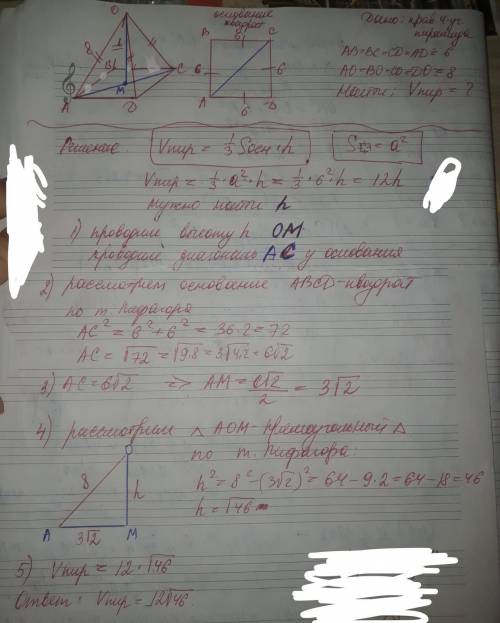 основание
квадрат
Дано: прав 4-уг.
пирамида
AB=BC=CD=AD=6
AO=BO=CO=DO=8
Найти: Vпир = ?
O
8
h
B
M
C
A
D
B
6
C
6
6
A
6
D
Решение. Vпир = 1/3 Sосн · h
S = a²
Vпир = 1/3 · a² · h = 1/3 · 6² · h = 12h
нужно найти h
1) проводим высоту h OM
проводим диагональ AC у основания
2) рассмотрим основание ABCD-квадрат
по т. Пифагора
AC² = 6² + 6² = 36·2 = 72
AC = √72 = √9·8 = 3√4·2 = 6√2
3) AC = 6√2 => AM = 6√2/2 = 3√2
4) рассмотрим △ AOM-прямоугольный △
по т. Пифагора:
h² = 8² - (3√2)² = 64 - 9·2 = 64 - 18 = 46
h = √46
O
8
h
A
3√2
M
5) Vпир = 12·√46
Ответ: Vпир = 12√46.